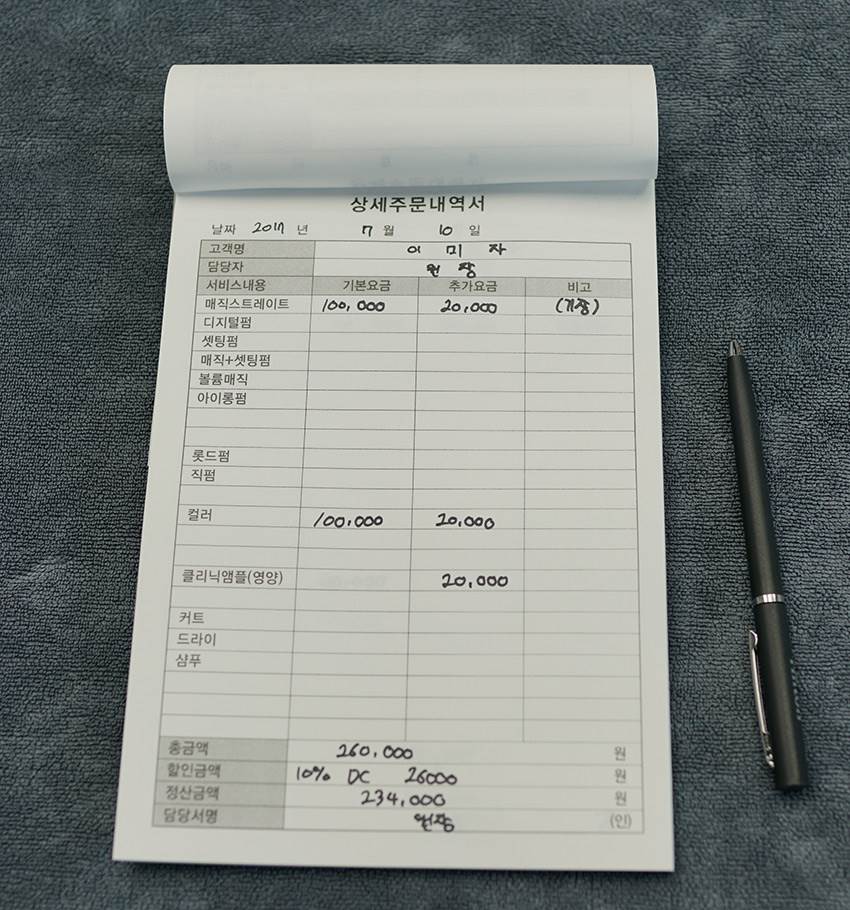 상세주문내역서
날짜 2017 년 7 월 10 일
고객명 이 미 자
담당자 원 장
서비스내용 기본요금 추가요금 비고
매직스트레이트 100,000 20,000 (기장)
디지털펌
셋팅펌
매직+셋팅펌
볼륨매직
아이롱펌
롯드펌
직펌
컬러 100,000 20,000
클리닉앰플(영양) 20,000
커트
드라이
샴푸
총금액 260,000 원
할인금액 10% DC 26000 원
정산금액 234,000 원
담당서명 원장 (인)